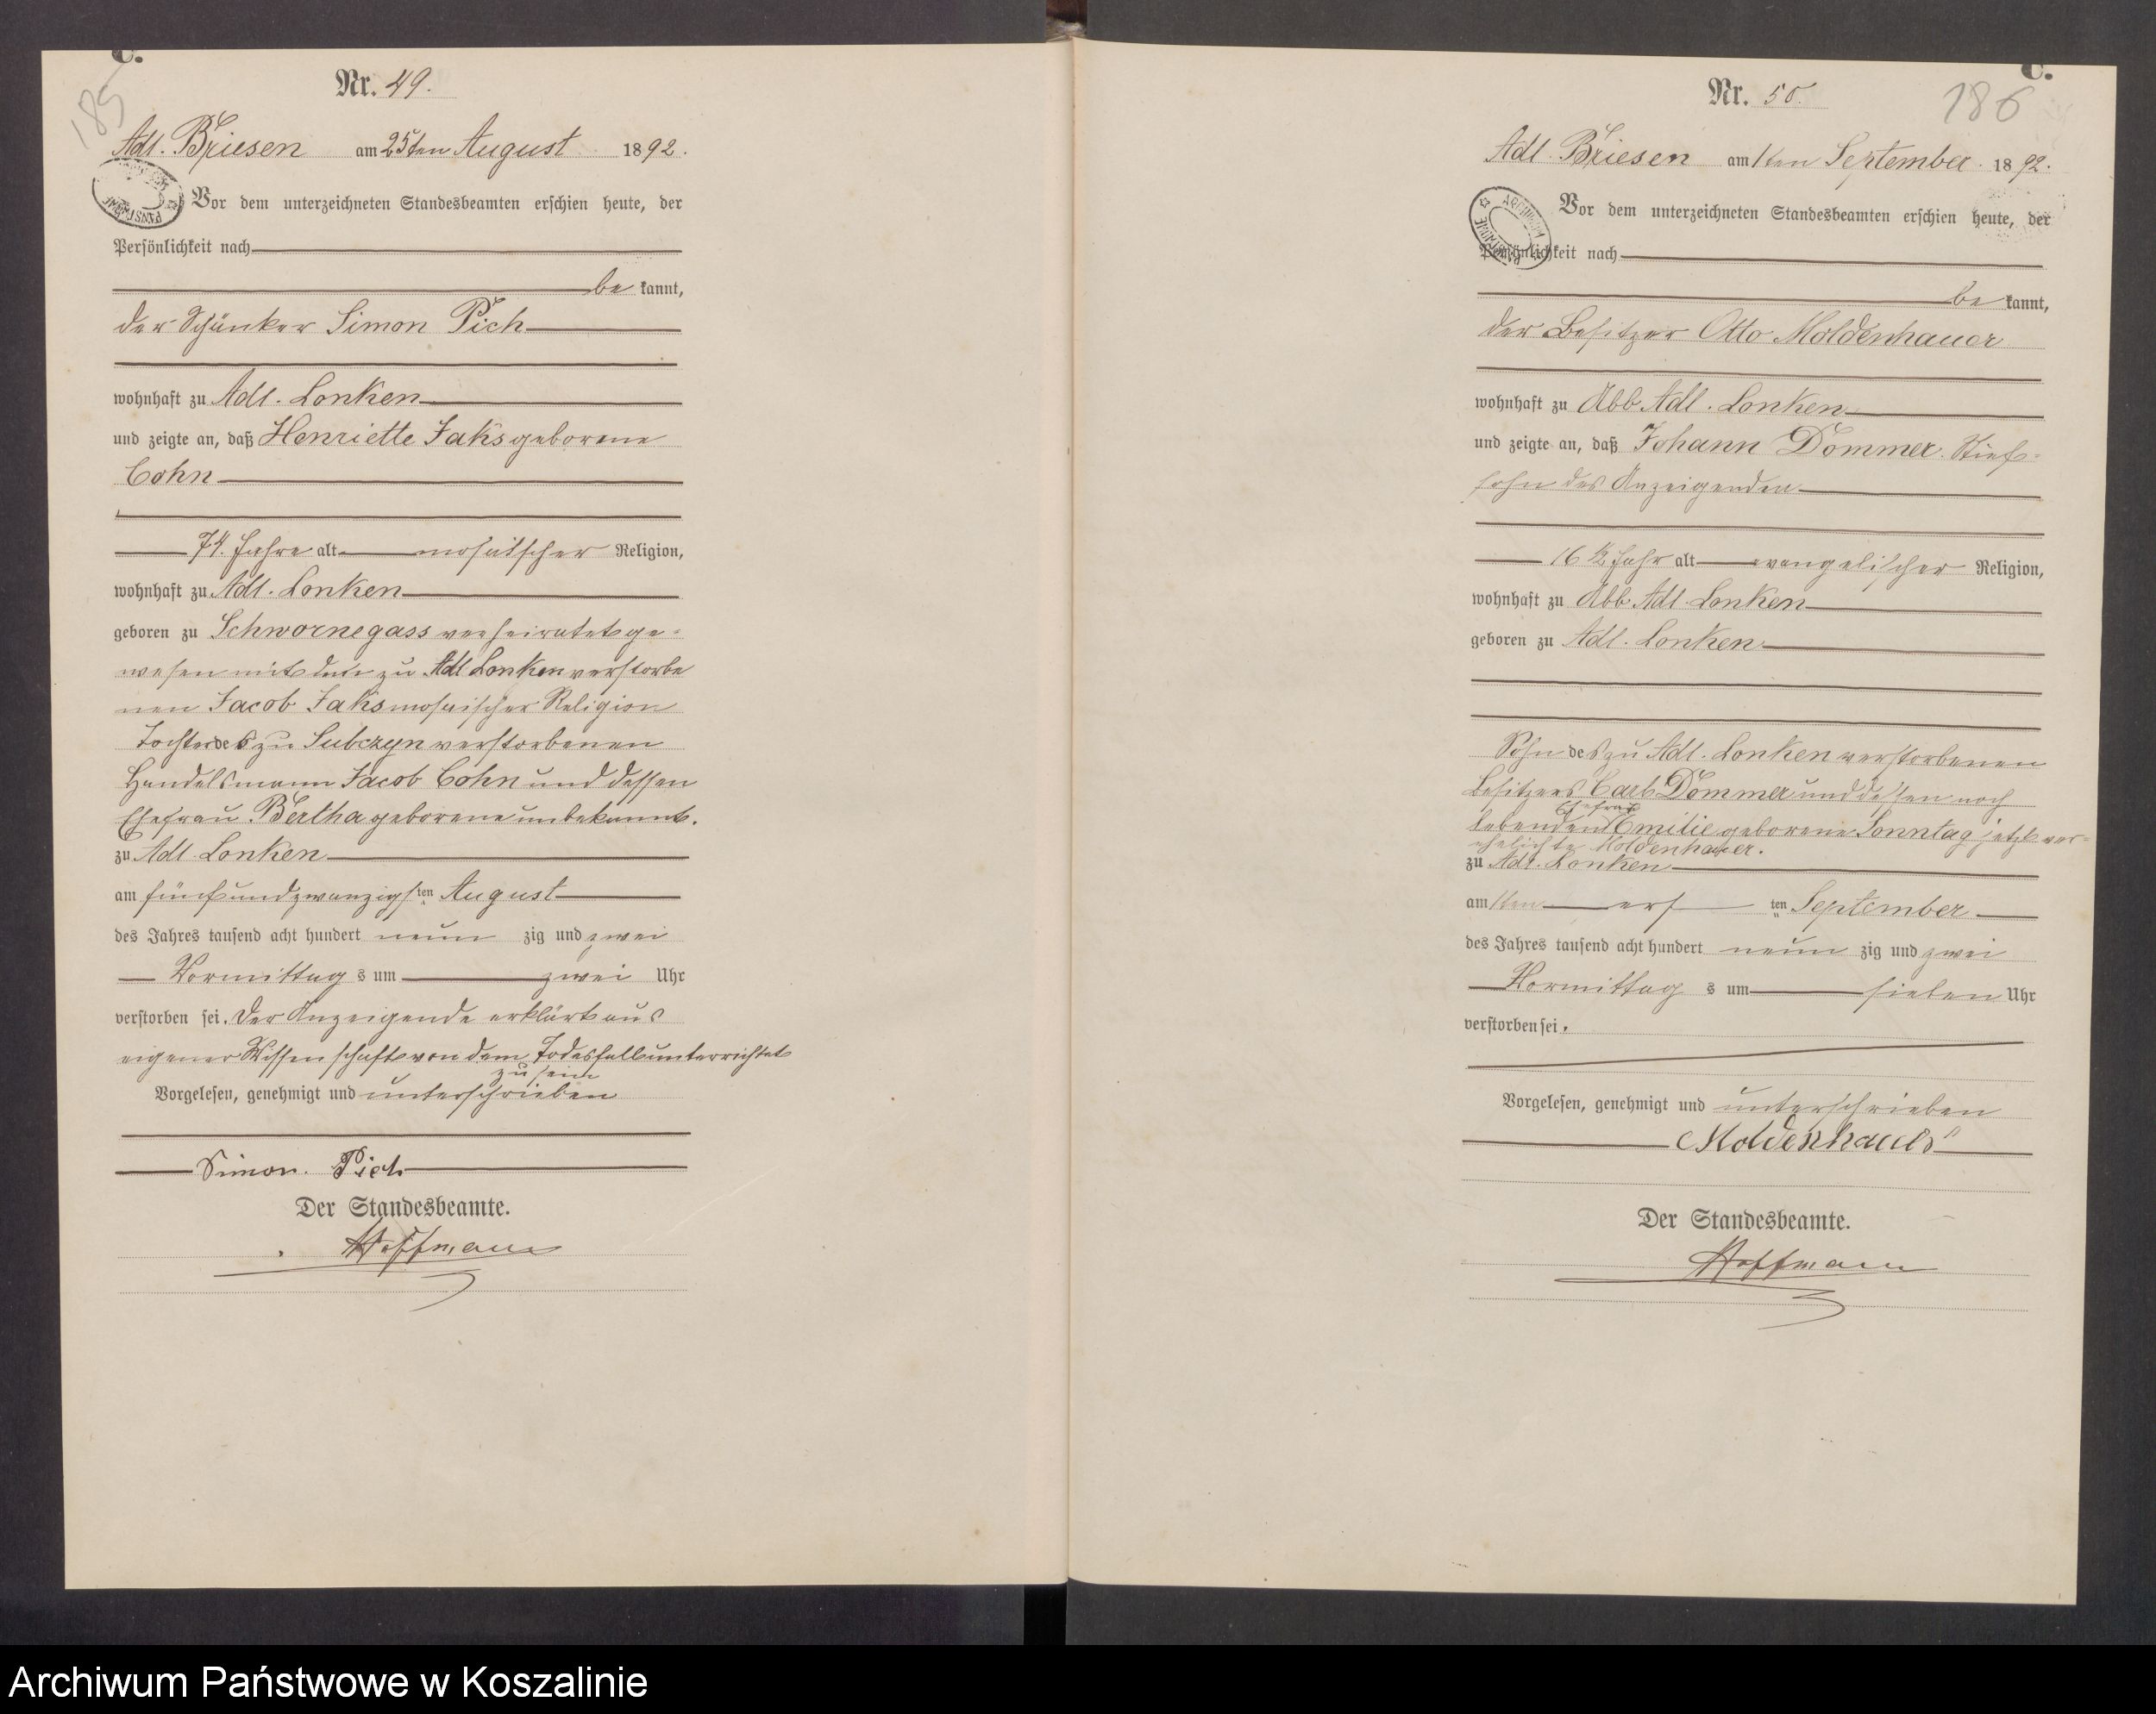 C.
185
Nr. 49.
Adl. Briesen am 25ten August 1892.
Vor dem unterzeichneten Standesbeamten erschien heute, der
Persönlichkeit nach
be kannt,
der Schänker Simon Pich
wohnhaft zu Adl. Lonken
und zeigte an, daß Henriette Jaks geborene
Cohn
74 Jahre alt mosaischer Religion,
wohnhaft zu Adl. Lonken
geboren zu Schwornegass verheiratet ge-
wesen mit dem zu Adl Lonken verstorbe
nen Jacob Jaks mosaischer Religion
Tochter des zu Subczyn verstorbenen
Handelsmann Jacob Cohn und dessen
Ehefrau Bertha geborene unbekannt.
zu Adl. Lonken
am fünfundzwanzigsten August
des Jahres tausend acht hundert neun zig und zwei
Vormittag s um zwei Uhr
verstorben sei. Der Anzeigende erklärt aus
eigener Wissenschaft von dem Todesfall unterrichtet
zu sein
Vorgelesen, genehmigt und unterschrieben
Simon. Pich
Der Standesbeamte.
Hoffmann
C.
186
Nr. 50.
Adl. Briesen am 1ten September 1892.
Vor dem unterzeichneten Standesbeamten erschien heute, der
Persönlichkeit nach
be kannt,
der Besitzer Otto Moldenhauer
wohnhaft zu Abb. Adl. Lonken
und zeigte an, daß Johann Dommer. Stief-
sohn des Anzeigenden
16 1/2 Jahr alt evangelischer Religion,
wohnhaft zu Abb Adl. Lonken
geboren zu Adl. Lonken
Sohn des zu Adl. Lonken verstorbenen
Besitzers Carl Dommer und dessen noch
lebenden Ehefrau Emilie geborene Sonntag jetzt ver-
ehelichte Moldenhauer.
zu Adl. Lonken
am 1ten ers ten September
des Jahres tausend acht hundert neun zig und zwei
Vormittag s um sieben Uhr
verstorben sei.
Vorgelesen, genehmigt und unterschrieben
Moldenhauer
Der Standesbeamte.
Hoffmann
Archiwum Państwowe w Koszalinie